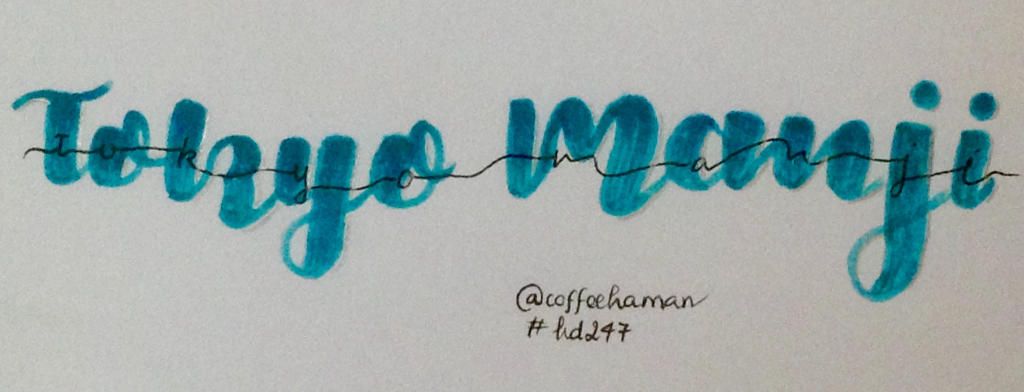 Tokyo Manji
Tokyo manji
@coffeehaman
#hd247